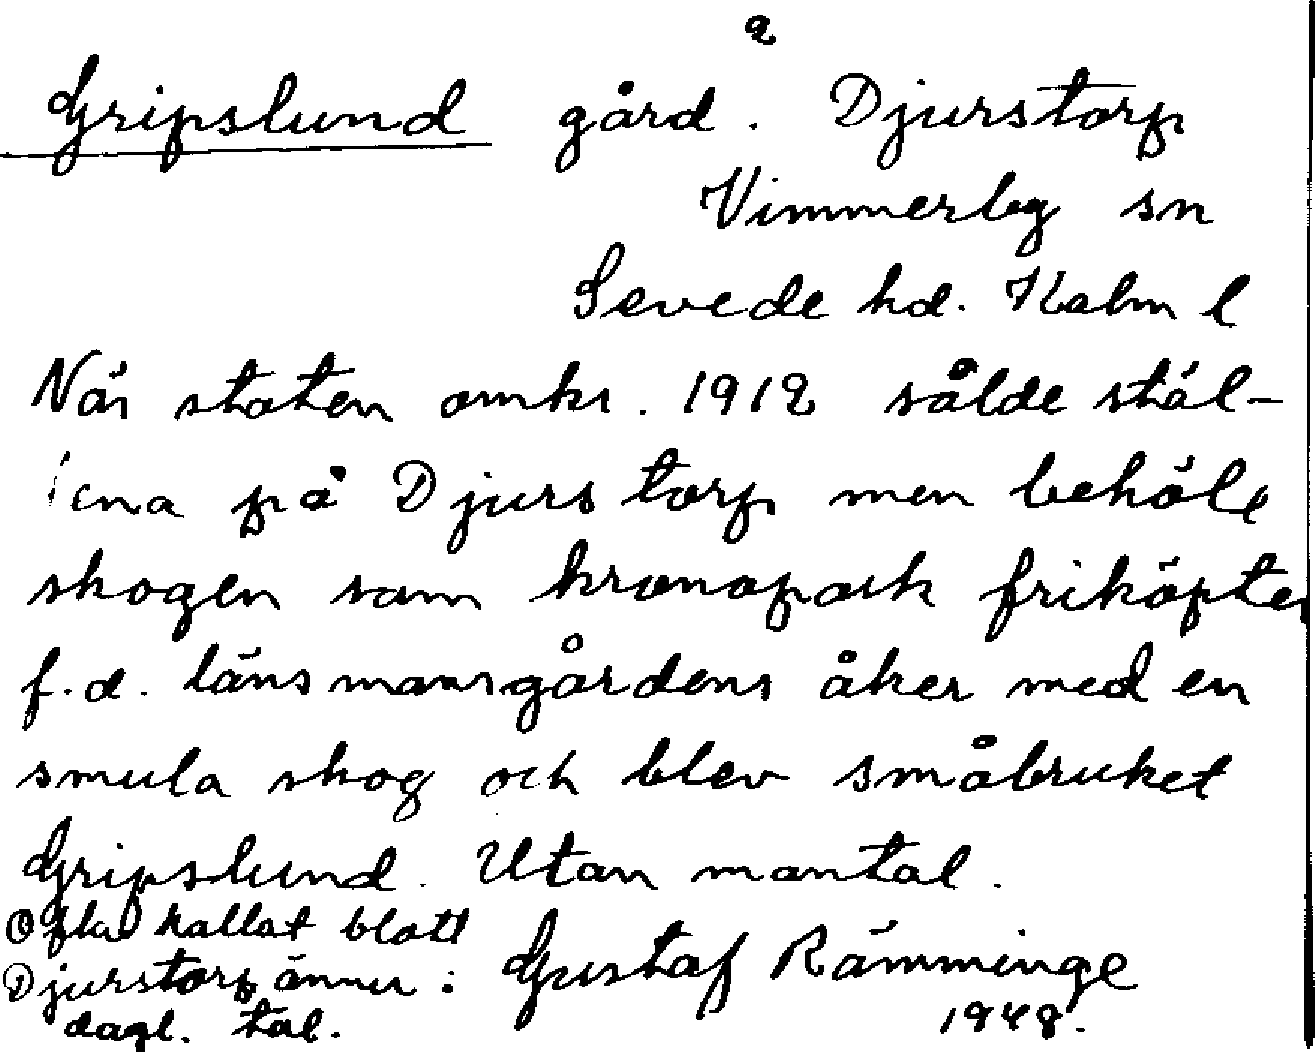 Gripslund gård. å Djurstorp
Vimmerby sn
Sevede hd. Kalm l
När staten omkr. 1912 sålde stäl-
lena på Djurstorp men behöll
skogen som kronopark friköptes
f.d. länsmansgårdens åker med en
smula skog och blev småbruket
Gripslund. Utan mantal.
Ofta kallat blott
Djurstorp ännu i
dagl. tal.
Gustaf Rämminge
1948.